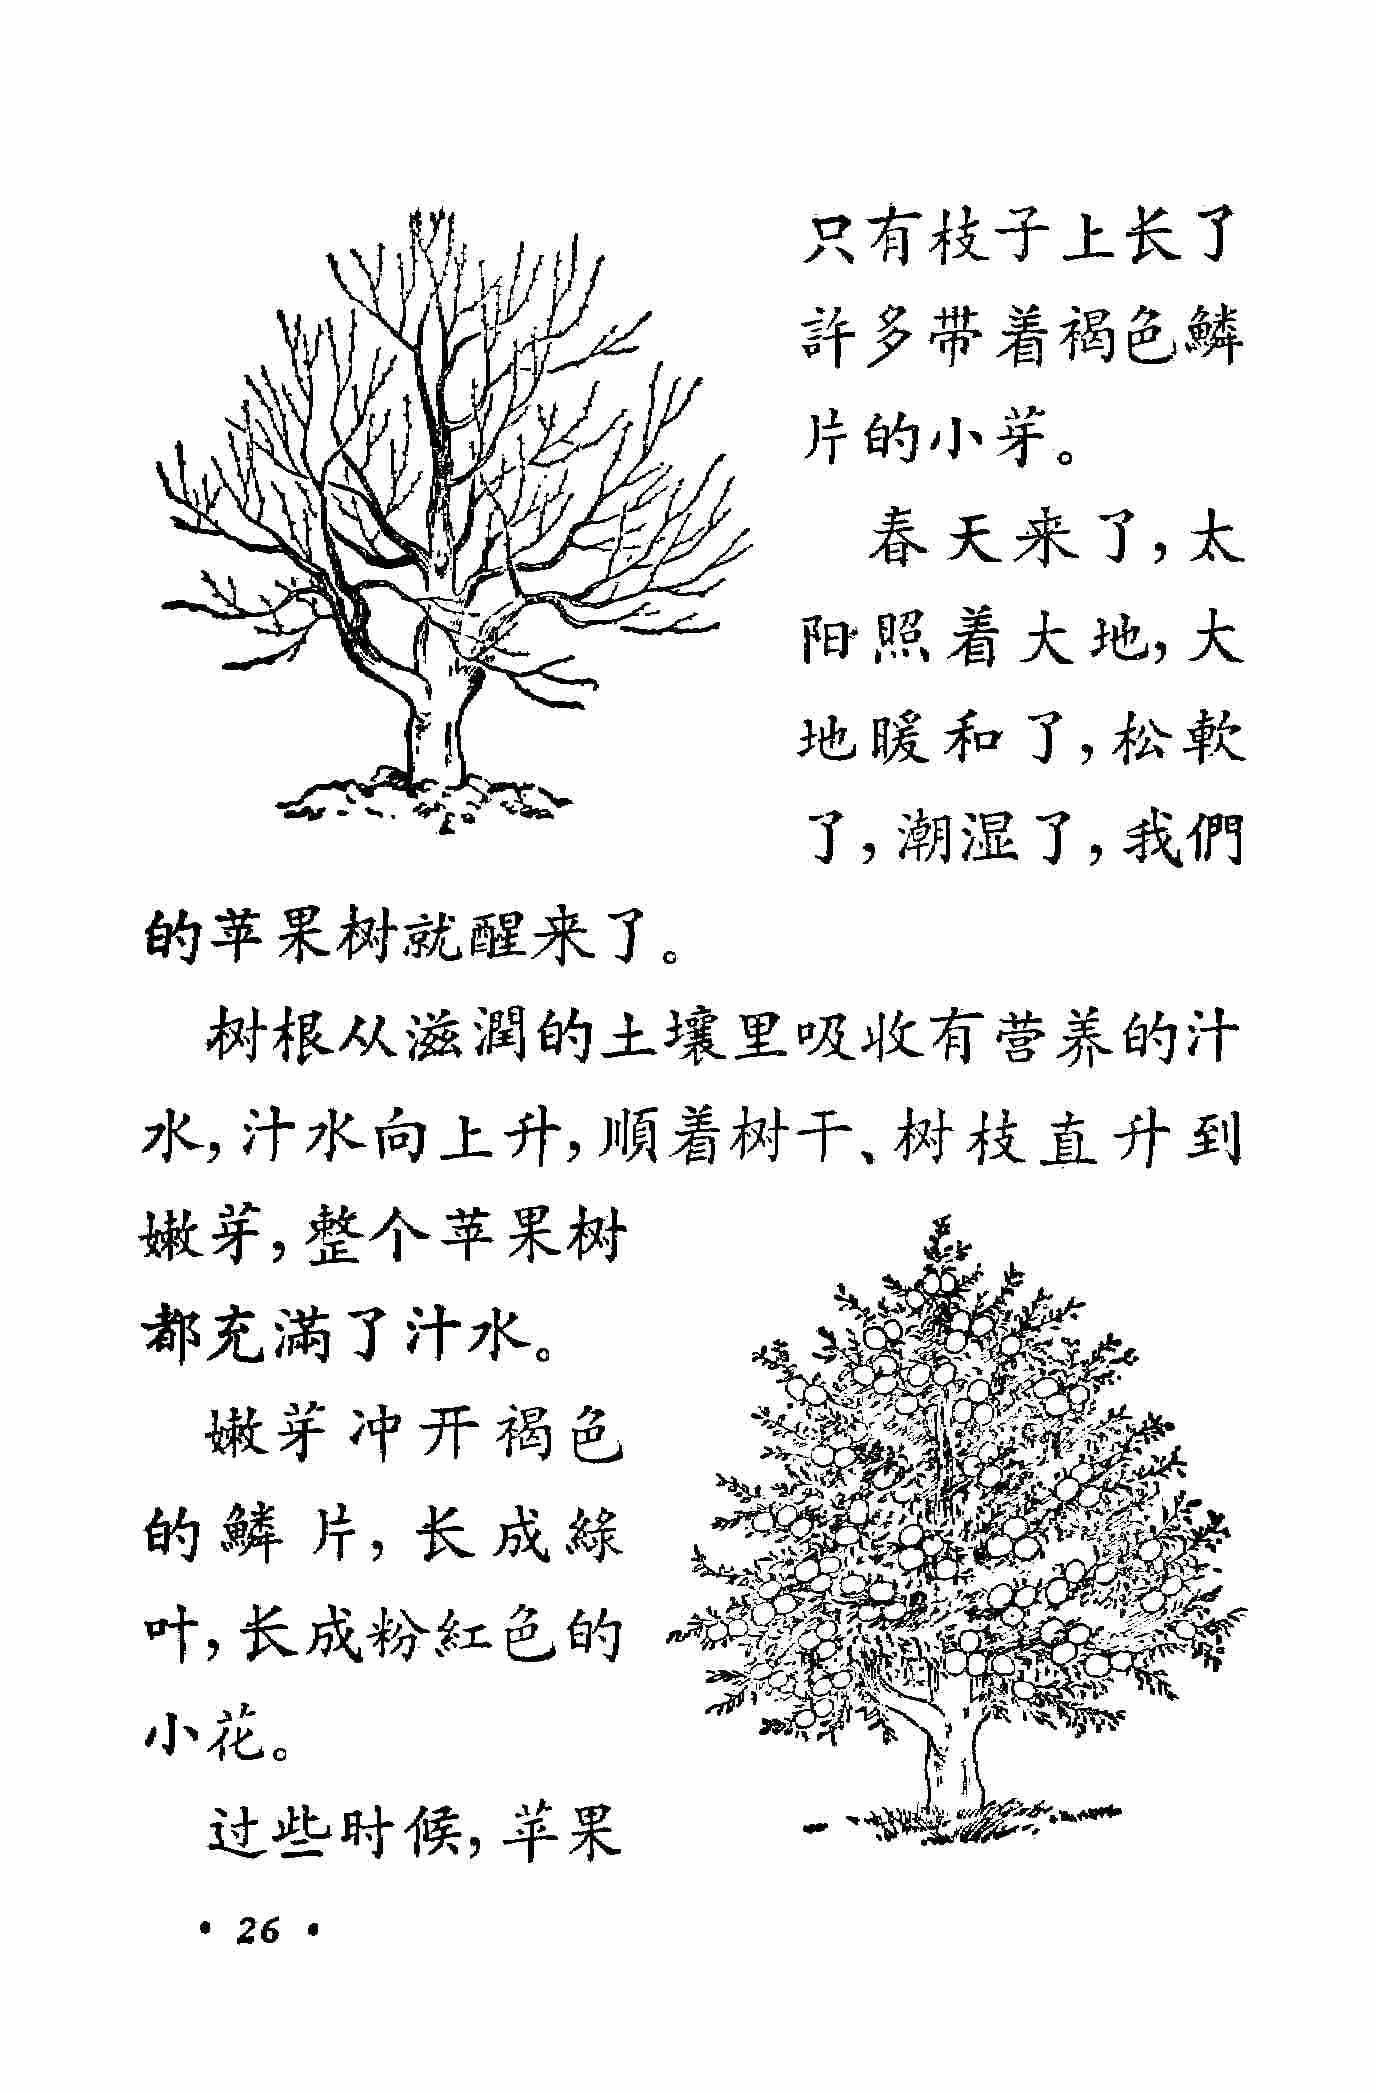 只有枝子上长了
許多带着褐色鳞
片的小芽。
春天来了，太
阳照着大地，大
地暖和了，松軟
了，潮湿了，我們
的苹果树就醒来了。
树根从滋潤的土壤里吸收有营养的汁
水，汁水向上升，順着树干、树枝直升到
嫩芽，整个苹果树
都充滿了汁水。
嫩芽冲开褐色
的鳞片，长成綠
叶，长成粉紅色的
小花。
过些时候，苹果
• 26 •